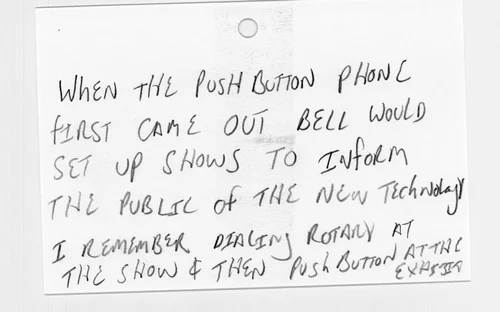 WHEN THE PUSH BUTTON PHONE
FIRST CAME OUT BELL WOULD
SET UP SHOWS TO INFORM
THE PUBLIC OF THE NEW TECHNOLOGY
I REMEMBER DIALING ROTARY AT
THE SHOW & THEN PUSH BUTTON AT THE
EXHIBIT